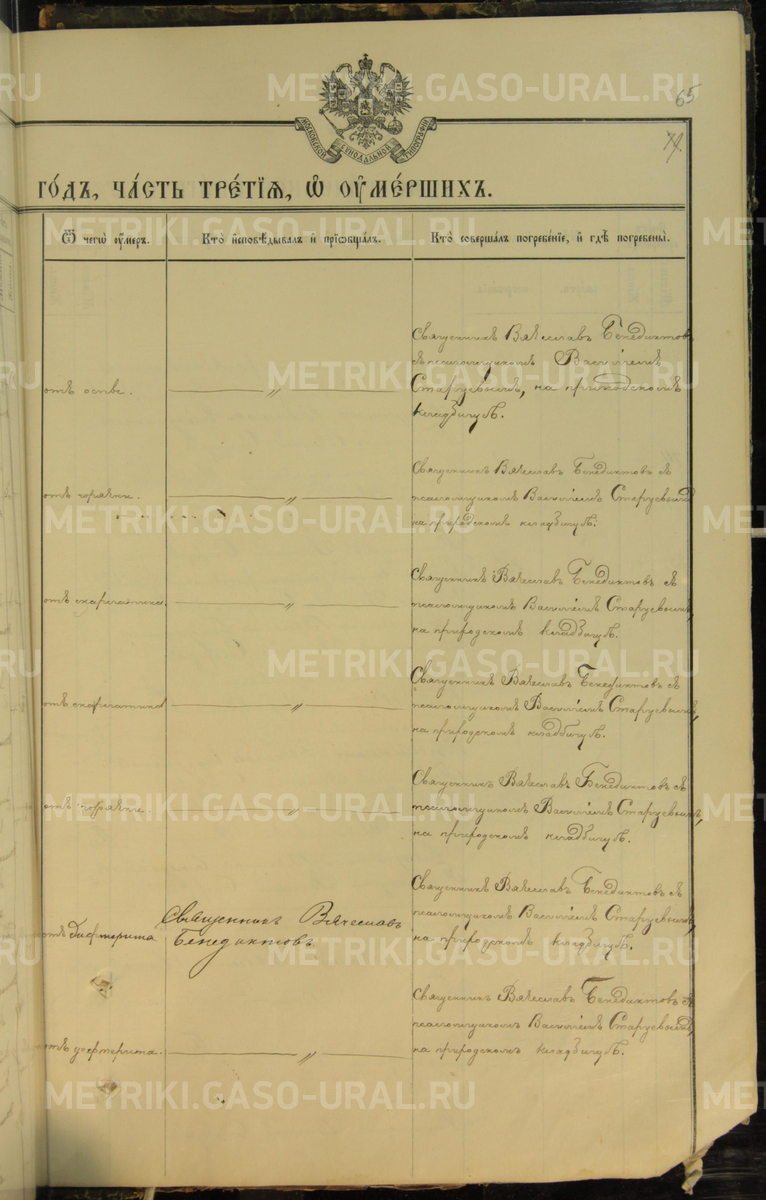 65
79.
МОСКОВСКОЙ СѴНОДАЛЬНОЙ ТИПОГРАФІИ
ГО́ДЪ, ЧА́СТЬ ТРЕ́ТІѦ, Ѡ҆ ОУ҆МЕ́РШИХЪ.
Ѿ чегѡ̀ оу҆́меръ.
Кто̀ и҆сповѣ́дывалъ и҆ приѡбща́лъ.
Кто̀ соверша́лъ погребе́нїе, и҆ гдѣ̀ погребены̀.
отъ оспы.
Священникъ Вячеславъ Бенедиктовъ
съ псаломщикомъ Василіемъ
Старцевымъ, на приходскомъ
кладбищѣ.
отъ горячки.
Священникъ Вячеславъ Бенедиктовъ съ
псаломщикомъ Василіемъ Старцевымъ
на приходскомъ кладбищѣ.
отъ скарлатины.
Священникъ Вячеславъ Бенедиктовъ съ
псаломщикомъ Василіемъ Старцевымъ,
на приходскомъ кладбищѣ.
отъ скарлатины
Священникъ Вячеславъ Бенедиктовъ съ
псаломщикомъ Василіемъ Старцевымъ,
на приходскомъ кладбищѣ.
отъ горячки.
Священникъ Вячеславъ Бенедиктовъ съ
псаломщикомъ Василіемъ Старцевымъ,
на приходскомъ кладбищѣ.
отъ дифтерита
Священникъ Вячеславъ
Бенедиктовъ
Священникъ Вячеславъ Бенедиктовъ съ
псаломщикомъ Василіемъ Старцевымъ,
на приходскомъ кладбищѣ.
отъ дифтерита.
Священникъ Вячеславъ Бенедиктовъ съ
псаломщикомъ Василіемъ Старцевымъ,
на приходскомъ кладбищѣ.
METRIKI.GASO-URAL.RU